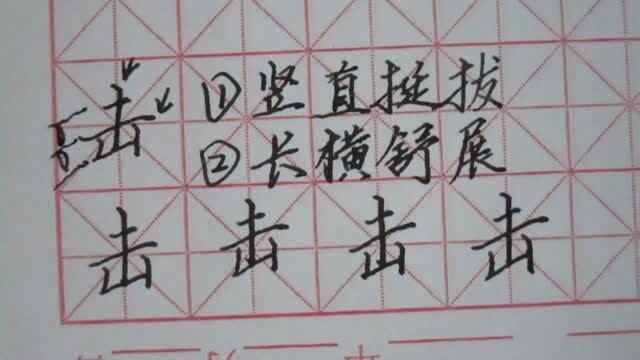 击①竖直挺拔
②长横舒展
击击击击